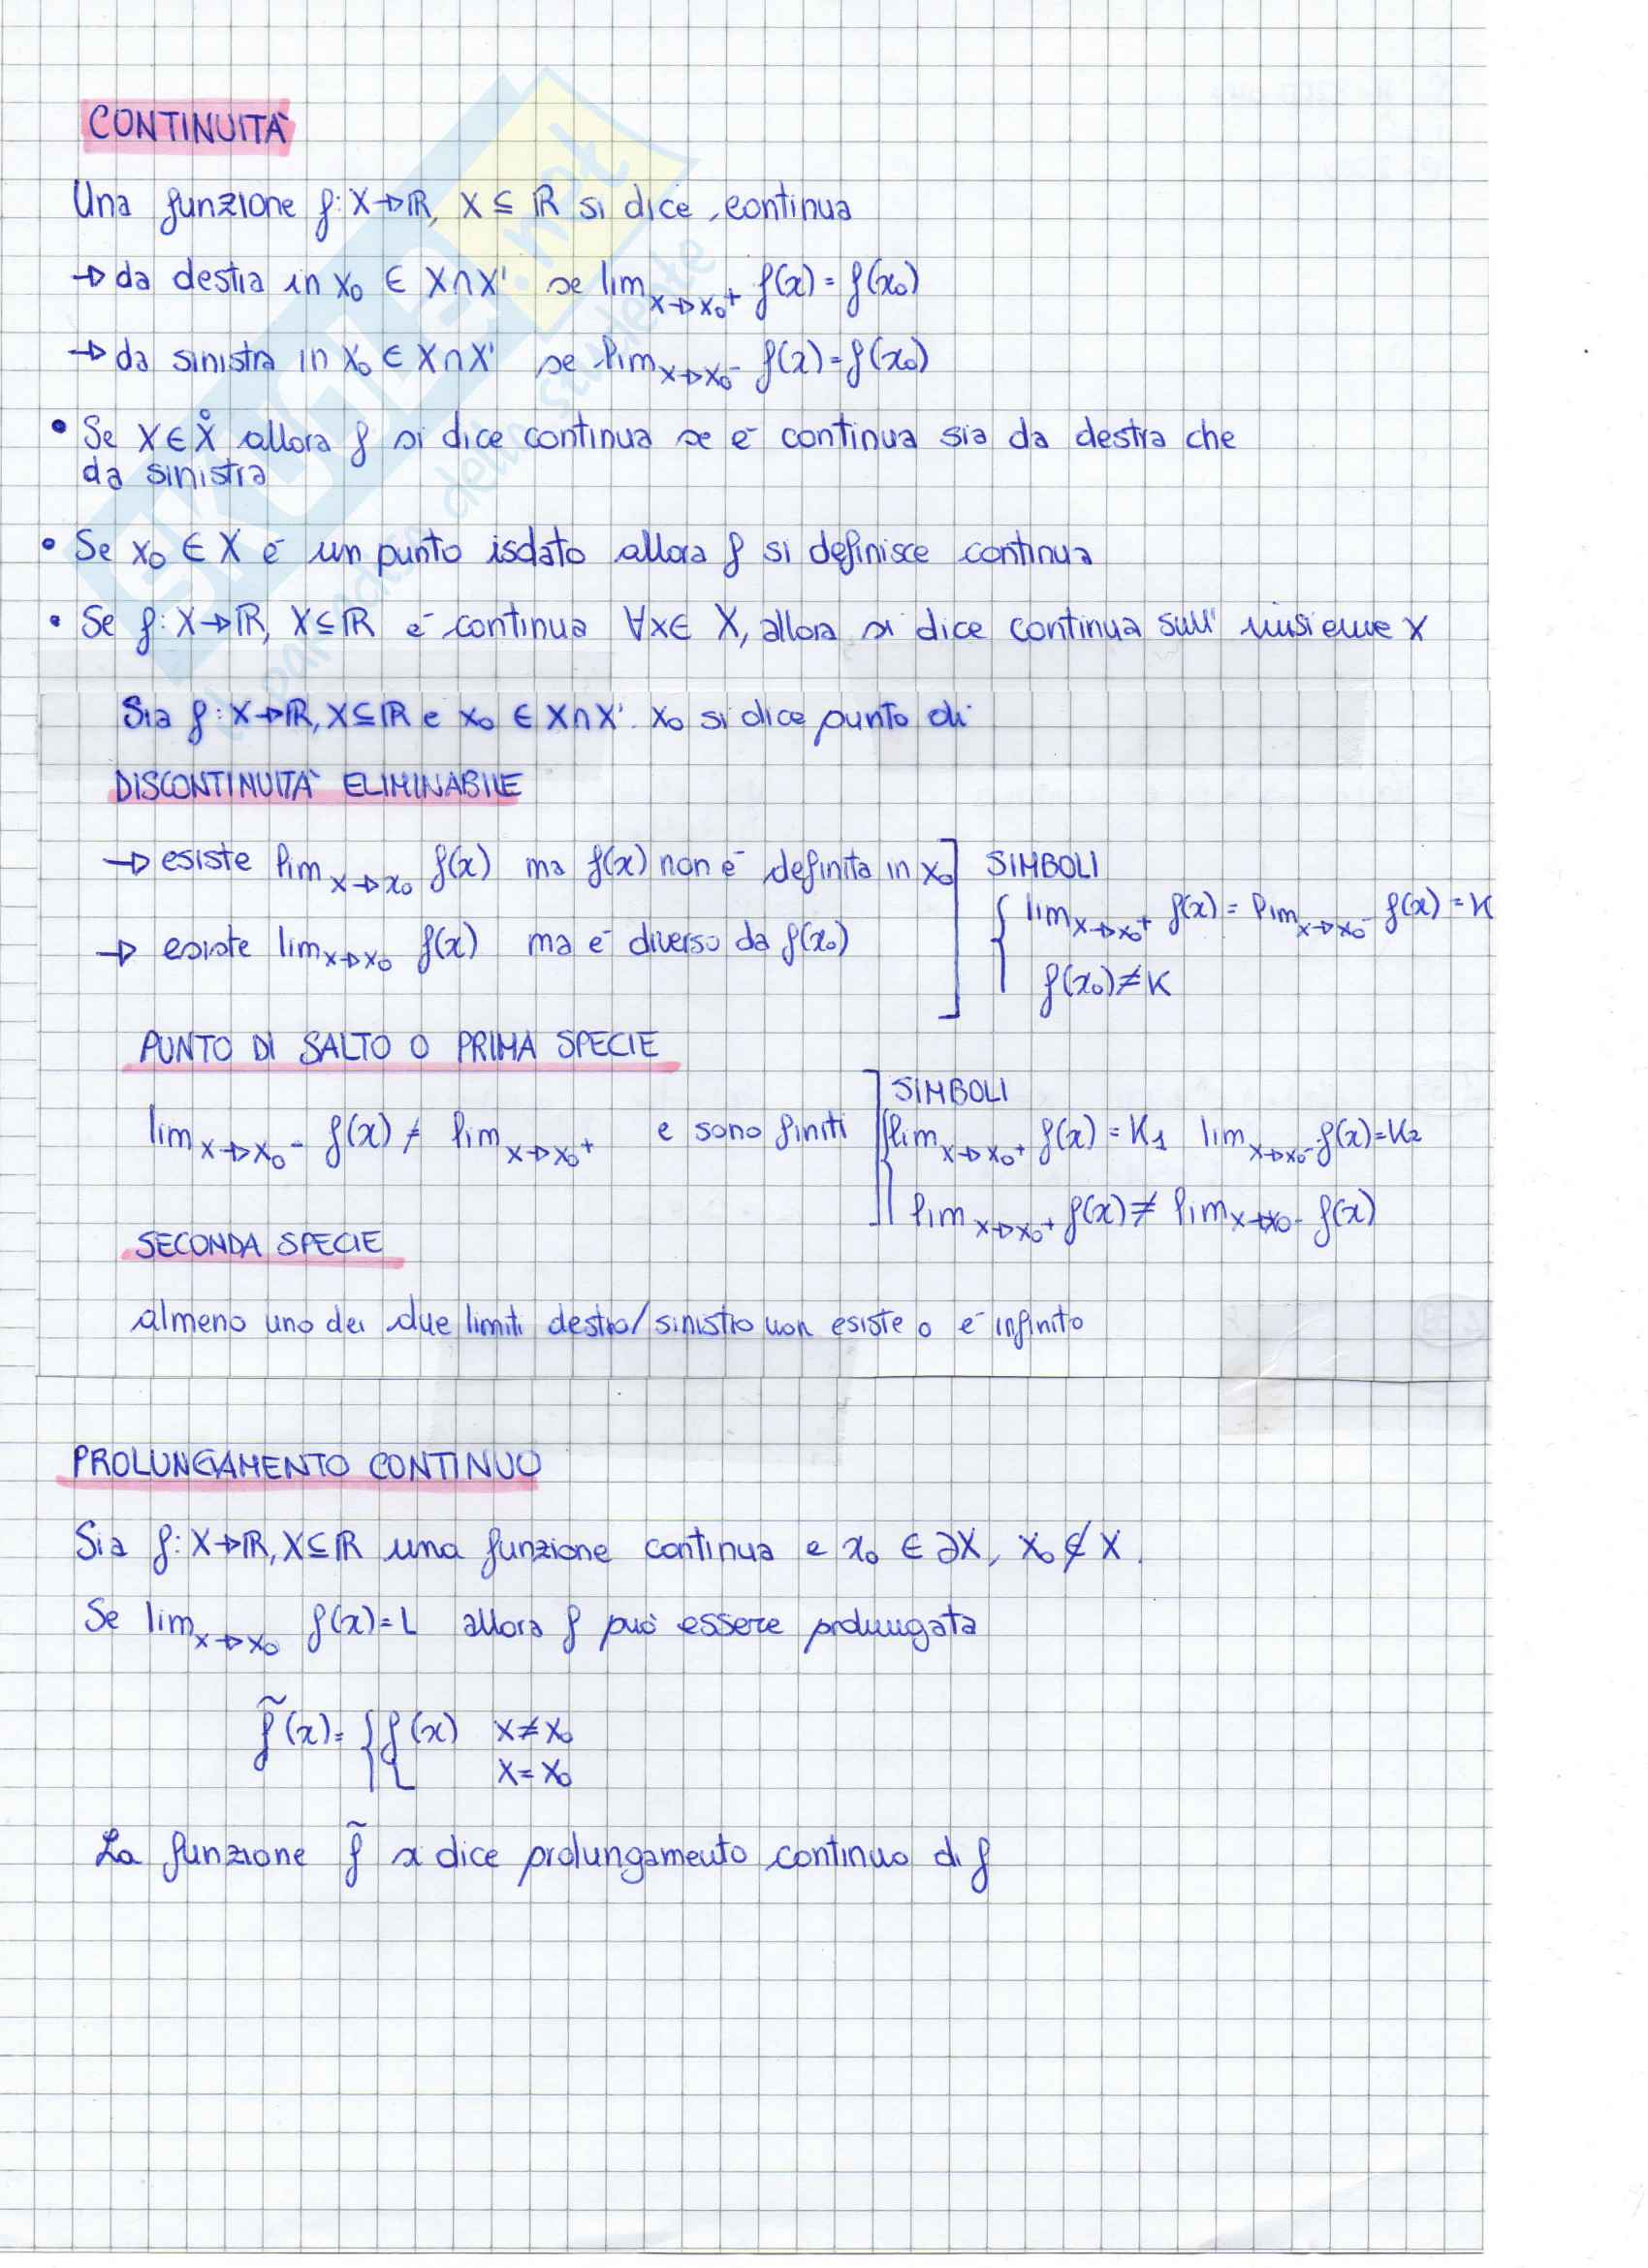 CONTINUITÀ
Una funzione f: X→ℝ, X ⊆ ℝ si dice continua
→ da destra in x₀ ∈ X∩X' se lim x→x₀⁺ f(x) = f(x₀)
→ da sinistra in x₀ ∈ X∩X' se lim x→x₀⁻ f(x) = f(x₀)
• Se X ∈ X̊ allora f si dice continua se è continua sia da destra che
da sinistra
• Se x₀ ∈ X è un punto isolato allora f si definisce continua
• Se f: X→ℝ, X⊆ℝ è continua ∀x∈ X, allora si dice continua sull' insieme X
Sia f: X→ℝ, X⊆ℝ e x₀ ∈ X∩X'. x₀ si dice punto di
DISCONTINUITÀ ELIMINABILE
→ esiste lim x→x₀ f(x) ma f(x) non è definita in x₀
→ esiste lim x→x₀ f(x) ma è diverso da f(x₀)
SIMBOLI
{ lim x→x₀⁺ f(x) = lim x→x₀⁻ f(x) = K
f(x₀) ≠ K
PUNTO DI SALTO O PRIMA SPECIE
lim x→x₀⁻ f(x) ≠ lim x→x₀⁺ e sono finiti
SIMBOLI
{ lim x→x₀⁺ f(x) = K₁ lim x→x₀⁻ f(x) = K₂
lim x→x₀⁺ f(x) ≠ lim x→x₀⁻ f(x)
SECONDA SPECIE
almeno uno dei due limiti destro/sinistro non esiste o è infinito
PROLUNGAMENTO CONTINUO
Sia f: X→ℝ, X⊆ℝ una funzione continua e x₀ ∈ ∂X, x₀ ∉ X.
Se lim x→x₀ f(x) = L allora f può essere prolungata
f̃(x) = { f(x) x ≠ x₀
L x = x₀
La funzione f̃ si dice prolungamento continuo di f
SKUOLA.net
il paradiso dello studente